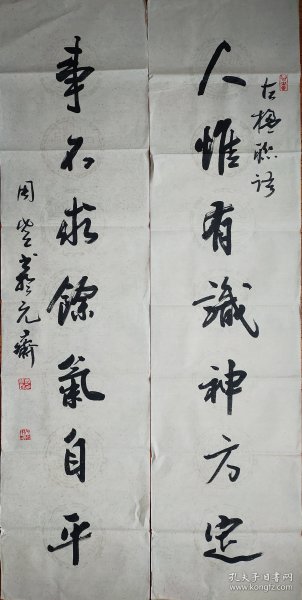 人惟有識神方定
古楹聯語
事不求餘氣自平
周
元齋
孔夫子旧书网